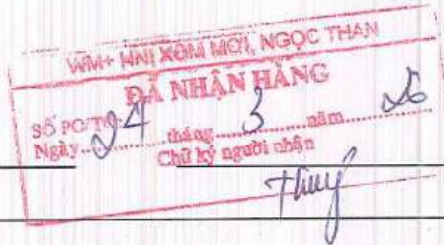 WM+ HNI XÓM MỚI, NGỌC THAN
ĐÃ NHẬN HÀNG
SỐ PO/TO
Ngày 24 tháng 3 năm 26
Chữ ký người nhận
Thuy